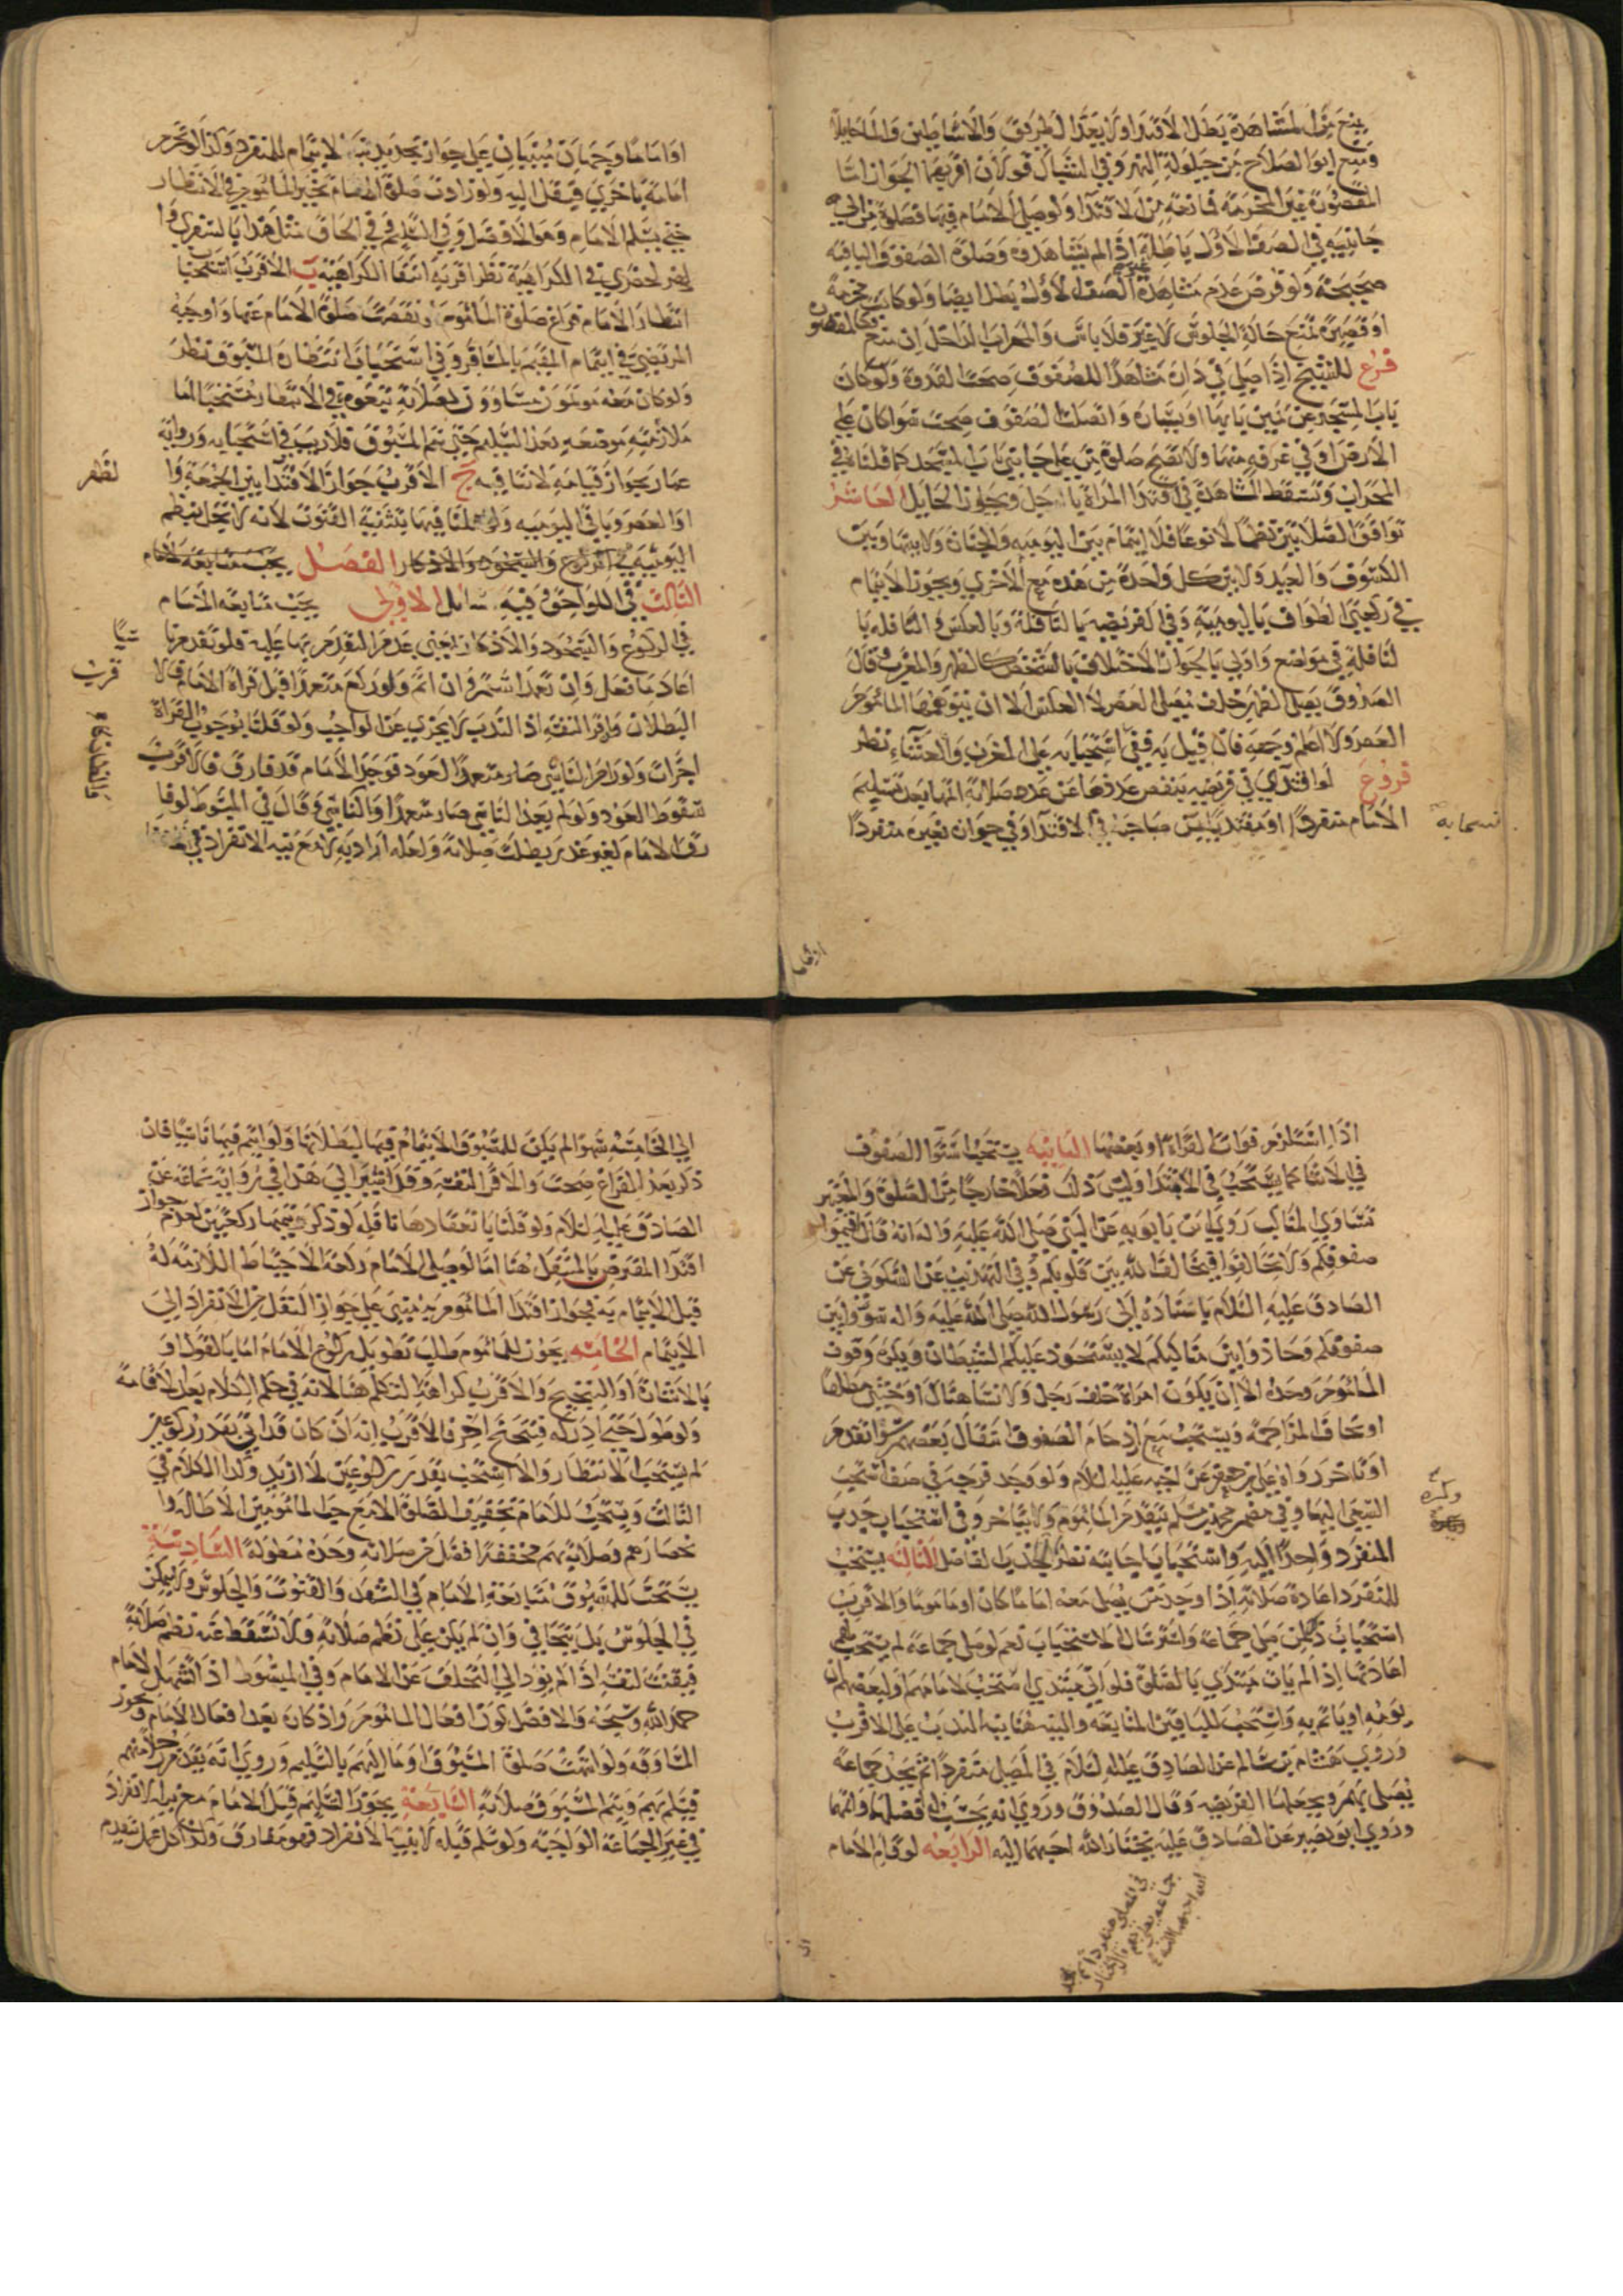 يمنع من المشاهدة بطل الاقتدا ولا يعد الطريق والاساطين والماء حايلا
ومنع ابو الصلاح من حيلولة النهر وفي الشباك قولان اقربهما الجواز اما
المقصورة غير المخرمة فمانعة من الاقتدا ولو صلى الامام فيها فصلوة من الى
جانبيه في الصف الاول باطلة اذا لم يشاهدوه وصلوة الصفوف الباقية
صحيحة ولو فرض عدم مشاهدة الصف الاول بطل ايضا ولو كانت مخرمة
او قصيرة تمنع حالة الجلوس لا غير فلا باس والمحراب الداخل ان منع كالمقصورة
فرع للشيخ اذا صلى في داره مشاهدا للصفوف صحت القدوة ولو كان
باب المسجد عن يمين بابها او يساره واتصلت الصفوف صحت سوا كان على
الارض او في غرفة منها ولا تصح صلوة من على جانبي باب المسجد كما قلناه في
المحراب وتسقط المشاهدة في اقتدا المراة بالرجل ويجوز الحايل العاشر
توافق الصلاتين نظما لا نوعا فلا ايتمام بين اليومية والجنازة ولا بينها وبين
الكسوف والعيد ولا بين كل واحدة من هذه مع الاخرى ويجوز الايتمام
في ركعتي الطواف باليومية وفي الفريضة بالنافلة وبالعكس والنافلة با
لنافلة في مواضع واولى بالجواز الاختلاف بالشخص كالظهر والمغرب وقال
الصدوق يصلي الظهر خلف مصلي العصر لا العكس الا ان يتوهمها الماموم
العصر ولا اعلم وجهه فان قيل به ففي استحبابه على المغرب والعشاء نظر
فروع لو اقتدى في فريضة ينقص عددها عن عدد صلاته اتمها بعد تسليم
الامام منفردا او مقتديا بمن صاحبه في الاقتدا وفي جوازه بغيره منفردا
او اماما وجهان مبنيان على جواز تجديد نية الايتمام للمنفرد وكذا لو تحرم
امامة باخرى فينتقل اليه ولو زادت صلوة الامام تخير الماموم في الانتظار
حتى يسلم الامام وهو الافضل وفي التسليم وفي الحاق مثل هذا بالسفري وا
لحضري في الكراهية نظر اقربه انتفا الكراهية ب الاقرب استحباب
انتظار الامام فراغ صلوة الماموم لو نقصت صلوة الامام عنها واوجبه
المرتضى في ايتمام المقيم بالمسافر وفي استحباب انتظاره المسبوق نظر
ولو كان معه موتمون مساوون لصلاته
ملازمته موضعه بعد التسليم حتى يتم المسبوق فلا ريب في استحبابه ورواية
عمار بجواز قيامه لا تنافيه ج الاقرب جواز الاقتدا بين الجمعة وا
لظهر
او العصر وباقي اليومية ولو قلنا فيها بتثنية القنوت لانه لا يخل بنظم
اليومية في الركوع والسجود والاذكار الفصل يجب متابعة الامام
الثالث في اللواحق وفيه مسائل الاولى يجب متابعة الامام
في الركوع والسجود والاذكار بمعنى عدم التقدم بها عليه فلو تقدم نا
سيا
اعاد ما فعل وان تعمد استمر وان اثم ولو ركع متعمدا قبل قراة الامام
قرب
البطلان ولو قرا لنفسه اذ الندب لا يجزي عن الواجب ولو قلنا بوجوب القراة
اجزات ولو رام الناسي صار متعمدا العود فوجد الامام قد فارق فالاقرب
سقوط العود ولو لم يعد الناسي صار متعمدا وقال في المبسوط لو فا
رق الامام لغير عذر بطلت صلاته ولعله اراد به لا مع نية الانفراد
اذا استلزم فوات القراة او بعضها الثانية يستحب استوا الصفوف
في الاثنا كما يستحب في الابتدا وليس ذلك فعلا خارجا من الصلوة والمعتبر
تساوي المناكب روى ابن بابويه عن النبي صلى الله عليه واله انه قال اقيموا
صفوفكم ولا تخالفوا فيخالف الله بين قلوبكم وفي التهذيب عن السكوني عن
الصادق عليه السلام باسناده الى رسول الله صلى الله عليه واله سووا بين
صفوفكم وحاذوا بين مناكبكم لا يستحوذ عليكم الشيطان ويكره وقوف
الماموم وحده الا ان يكون امراة خلف رجل ولا نسا هناك او خنثى مطلقا
او تخاف المزاحمة ويستحب مع ازدحام الصفوف انتقال بعضهم سوا تقدم
او تاخر رواه علي بن جعفر عن اخيه عليه السلام ولو وجد فرجة في صف استحب
السعي اليها وفي مضمر محمد بن مسلم يتقدم الماموم ولا يتاخر وفي استحباب جذب
وكره
المنفرد واحدا اليه واستحباب اجابته نظر الثالثة يستحب
للمنفرد اعادة صلاته اذا وجد من يصلي معه اماما كان او ماموما والاقرب
استحباب ذلك لمن صلى جماعة واسترسال الاستحباب نعم لو صلى جماعة لم يستحب لهم
اعادتها اذا لم يات مبتدي بالصلوة فلو اتى مبتدي استحب لامامهم او لبعضهم ان
يومه او ياتم به واستحب للباقين المتابعة والنية هنا نية الندب على الاقرب
وروى هشام بن سالم عن الصادق عليه السلام في المصلي منفردا ثم يجد جماعة
يصلي بهم ويجعلها الفريضة وقال الصدوق وروى انه يحسب له افضلهما واتمهما
وروى ابو بصير عن الصادق عليه يختار الله احبهما اليه الرابعة لو قام الامام
الى الخامسة سهوا لم يكن للمسبوق الايتمام فيها لبطلانها ولو ايتم فيها ناسيا فان
ذكر بعد الفراغ صحت والا قرا لنفسه وقد اشير الى هذا في رواية سماعة عن
الصادق عليه السلام ولو قلنا بانعقادها نافلة لو ذكر ويتمها ركعتين لعدم جواز
اقتدا المفترض بالمتنفل هنا اما لو صلى الامام ركعة الاحتياط اللازمة له
قبل الايتمام به فجواز اقتدا الماموم به مبني على جواز النقل من الانفراد الى
الايتمام الخامسة يجوز للماموم طلب تطويل ركوع الامام اما بالقول او
بالاشارة او التنحنح والاقرب كراهية التكلم هنا لانه في حكم الكلام بعد الاقامة
ولو طول حتى ادركه فتنحنح اخر فالاقرب انه ان كان قد اتى بقدر ركوعين
لم يستحب الانتظار والا استحب بقدر ركوعين لا ازيد وكذا الكلام في
الثالث ويستحب للامام تخفيف الصلوة الا مع حب المامومين الاطالة وا
نحصارهم وصلاته بهم مخففة افضل من صلاته وحده مطولة السادسة
يستحب للمسبوق متابعة الامام في التشهد والقنوت والجلوس ولا يتمكن
في الجلوس بل يتجافى وان لم يكن على نظم صلاته ولا تسقط عنه نظم صلاته
فيقنت لنفسه اذا لم يود الى التخلف عن الامام وفي المبسوط اذا استمهل الامام
حمد الله وسبحه والافضل كون افعال الماموم واذكاره بعد افعال الامام ويجوز
المساوقة ولو اتمت صلوة المسبوق اوما اليهم بالتسليم وروى انه يقدم رجلا منهم
فيسلم بهم ويتم المسبوق صلاته السابعة يجوز التسليم قبل الامام مع نية الانفراد
في غير الجماعة الواجبة ولو سلم قبله لا بنية الانفراد فهو مفارق